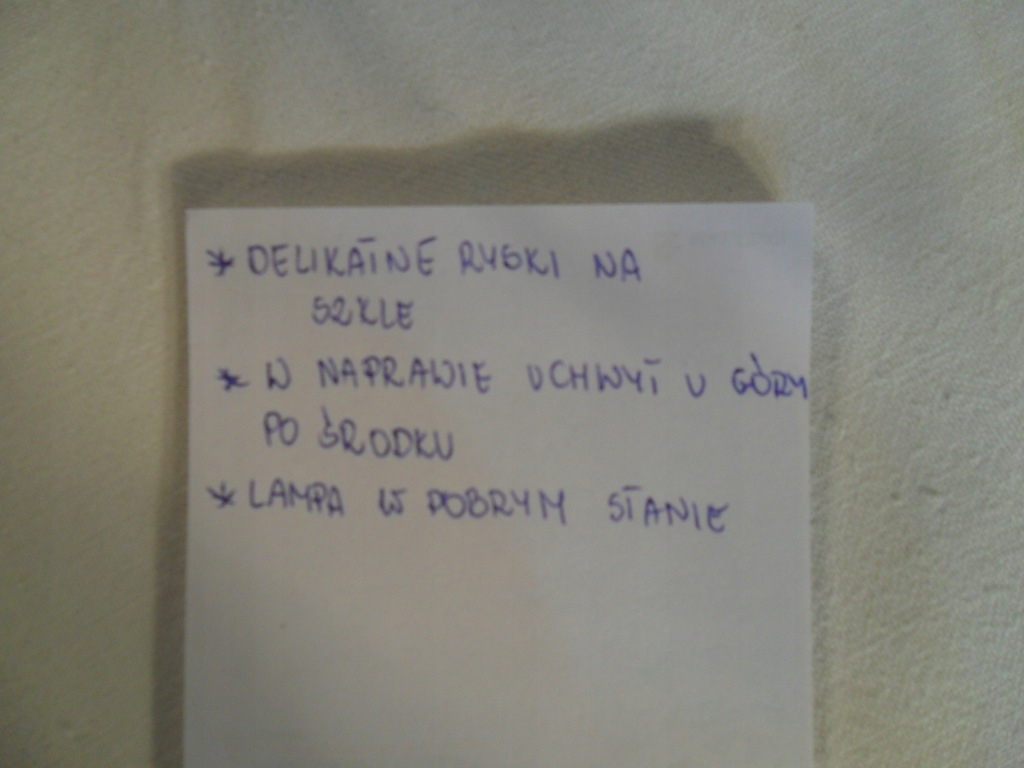 * DELIKATNE RYSKI NA
SZKLE
* W NAPRAWIE UCHWYT U GÓRY
PO ŚRODKU
* LAMPA W DOBRYM STANIE